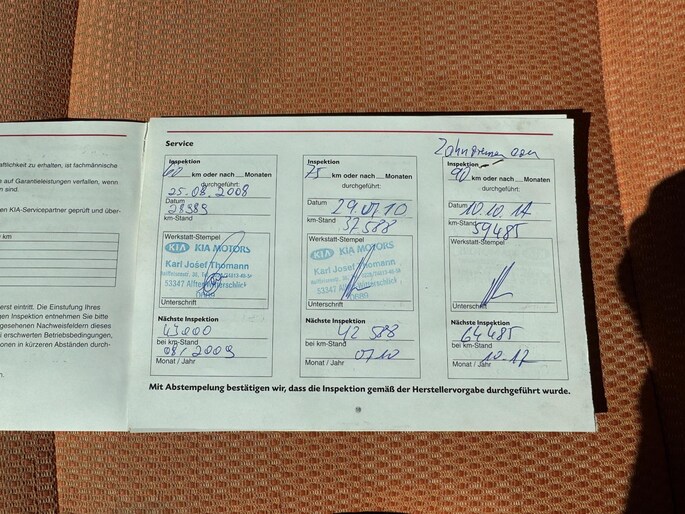 aftlichkeit zu erhalten, ist fachmännische
e auf Garantieleistungen verfallen, wenn
en sind.
en KIA-Servicepartner geprüft und über-
km
erst eintritt. Die Einstufung Ihres
gen Inspektion entnehmen Sie bitte
gesehenen Nachweisfeldern dieses
i erschwerten Betriebsbedingungen,
onen in kürzeren Abständen durch-
n.
Service
Inspektion
60 km oder nach Monaten
durchgeführt:
25.08.2008
Datum
28989
km-Stand
Werkstatt-Stempel
KIA KIA MOTORS
Karl Josef Thomann
53347 Alfter-Witterschlick
Unterschrift
Nächste Inspektion
43000
bei km-Stand
08/2009
Monat / Jahr
Inspektion
75 km oder nach Monaten
durchgeführt:
Datum 29.07.10
37588
km-Stand
Werkstatt-Stempel
KIA KIA MOTORS
Karl Josef Thomann
53347 Alfter-Witterschlick
Unterschrift
Nächste Inspektion
42 588
bei km-Stand
07 10
Monat / Jahr
Zahnriemen
Inspektion
90 km oder nach Monaten
durchgeführt:
Datum 10.10.17
59485
km-Stand
Werkstatt-Stempel
Unterschrift
Nächste Inspektion
64485
bei km-Stand
10.17
Monat / Jahr
Mit Abstempelung bestätigen wir, dass die Inspektion gemäß der Herstellervorgabe durchgeführt wurde.